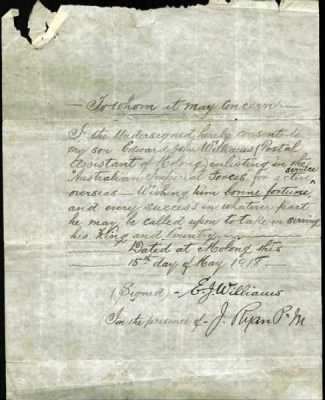 — To whom it may Concern —
I the Undersigned, hereby consent to
my son Edward John Williams (Postal
Assistant of Molong) enlisting in the
Australian Imperial Forces for active service
overseas — Wishing him bonne fortune
and every success in whatever part
he may be called upon to take in serving
his King and Country.
Dated at Molong this
15th day of May 1918
(Signed) - E. J. Williams
In the presence of - J. Ryan P.M